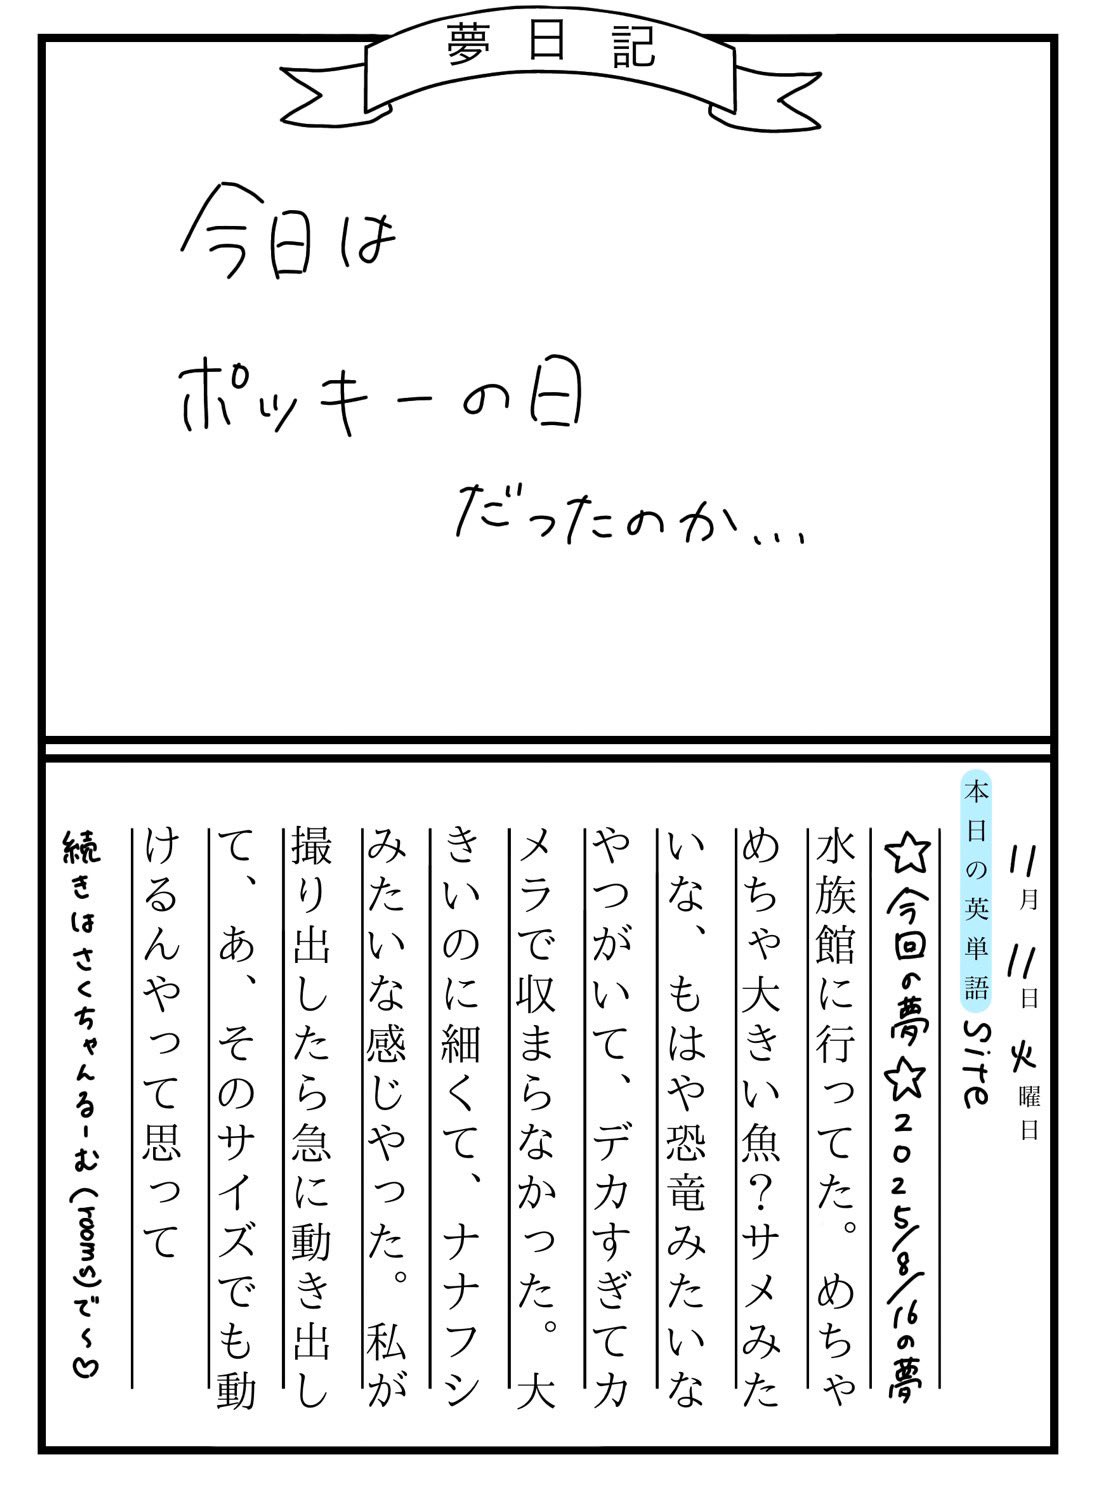 夢日記
今日は
ポッキーの日
だったのか...
11月11日火曜日
本日の英単語 site
☆今回の夢☆2025/8/16の夢
水族館に行ってた。めちゃ
めちゃ大きい魚？サメみた
いな、もはや恐竜みたいな
やつがいて、デカすぎてカ
メラで収まらなかった。大
きいのに細くて、ナナフシ
みたいな感じやった。私が
撮り出したら急に動き出し
て、あ、そのサイズでも動
けるんやって思って
続きはさくちゃんるーむ(rooms)で〜♡